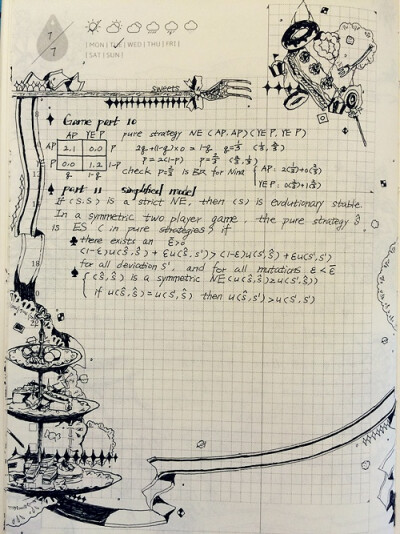 7
7
| MON | TUE | WED | THU | FRI |
| SAT | SUN |
sweets
Game part 10
AP YE P pure strategy NE (AP, AP) (YE P, YE P)
AP 2.1 0.0 P 2q+(1-q)×0 = 1-q q=1/3 (1/3, 2/3)
YE P 0.0 1.2 1-P P = 2(1-P) P=2/3 (2/3, 1/3)
q 1-q check P=2/3 is BR for Nina { AP: 2(1/3)+0(2/3)
YE P: 0(1/3)+1(2/3)
part 11 simplified model
If (s.s) is a strict NE, then (s) is evolutionary stable.
In a symmetric two player game, the pure strategy ŝ
is ES (in pure strategies) if
there exists an ε̄>0
(1-ε)u(ŝ,ŝ) + εu(ŝ,s') > (1-ε)u(s',ŝ) + εu(s',s')
for all deviation s', and for all mutations ε < ε̄
{ (ŝ,ŝ) is a symmetric NE (u(ŝ,ŝ)≥u(s',ŝ))
if u(ŝ,ŝ)=u(s',ŝ) then u(ŝ,s')>u(s',s')
18
20